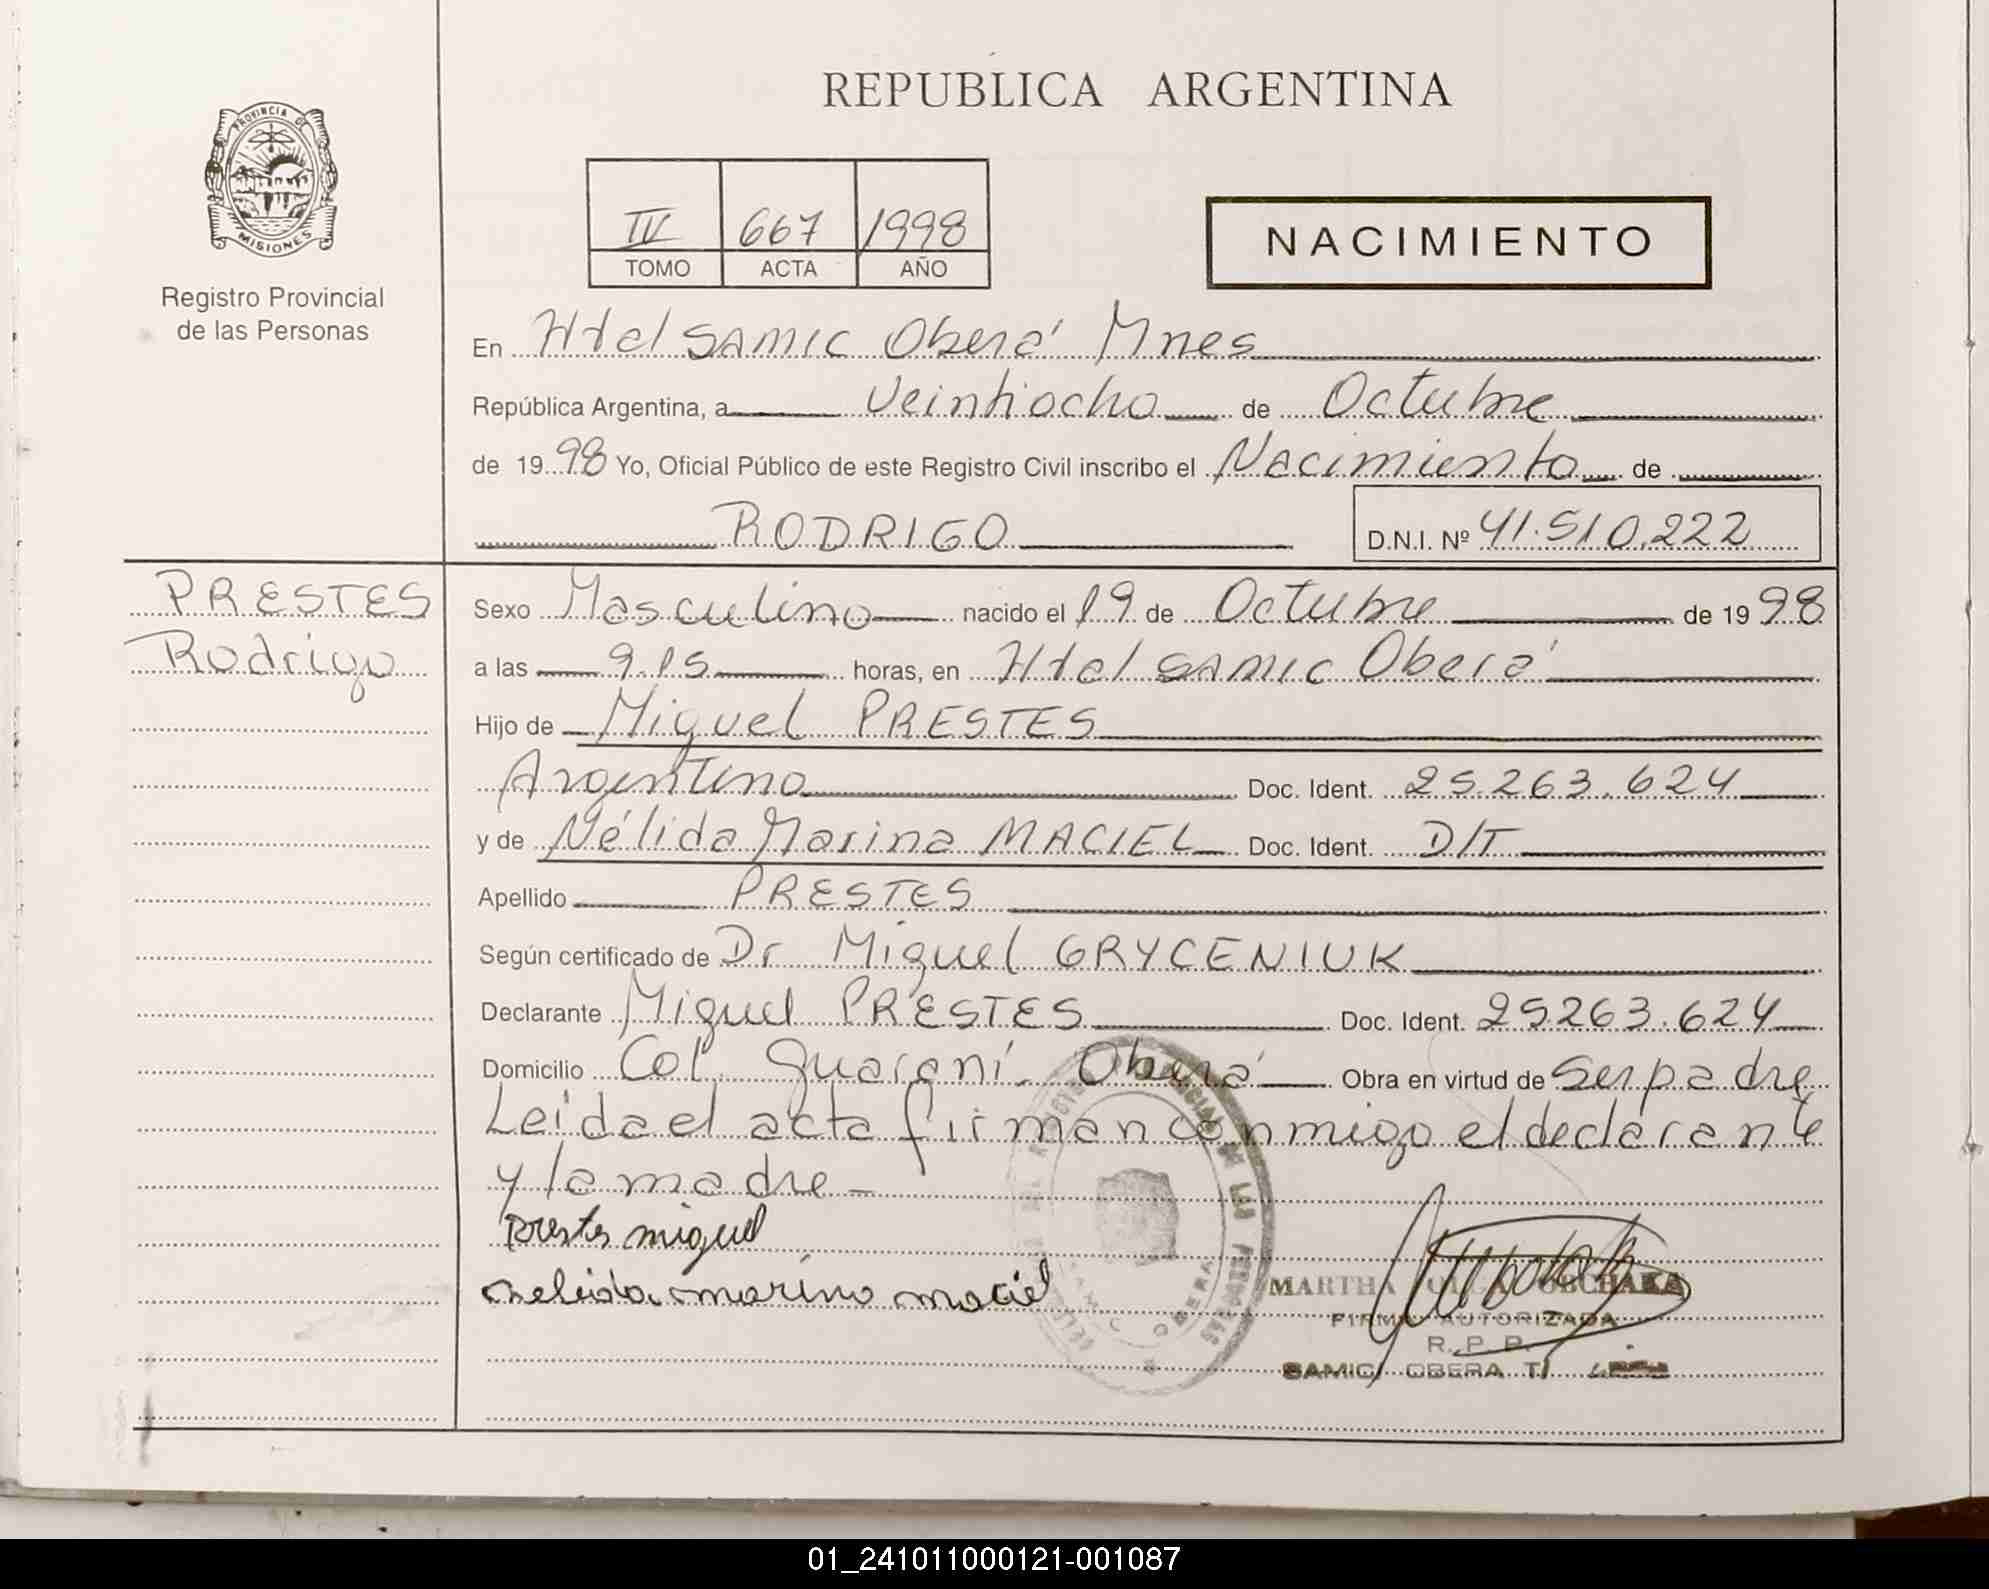 REPUBLICA ARGENTINA
PROVINCIA DE
MISIONES
Registro Provincial
de las Personas
IV 667 1998
TOMO ACTA AÑO
NACIMIENTO
En Htal SAMIC Oberá Mnes
República Argentina, a Veintiocho de Octubre
de 1998 Yo, Oficial Público de este Registro Civil inscribo el Nacimiento de
RODRIGO D.N.I. Nº 41.510.222
PRESTES
Rodrigo
Sexo Masculino nacido el 19 de Octubre de 1998
a las 9.15 horas, en Htal SAMIC Oberá
Hijo de Miguel PRESTES
Argentino Doc. Ident. 25.263.624
y de Nélida Marina MACIEL Doc. Ident. D/T
Apellido PRESTES
Según certificado de Dr Miguel GRYCENIUK
Declarante Miguel PRESTES Doc. Ident. 25263.624
Domicilio Col. Guaraní. Oberá Obra en virtud de Ser padre
Leida el acta firman conmigo el declarante
y la madre
Prestes miguel
Nelida marina maciel
MARTHA
FIRMA AUTORIZADA
R. P. P.
SAMIC OBERA
01_241011000121-001087